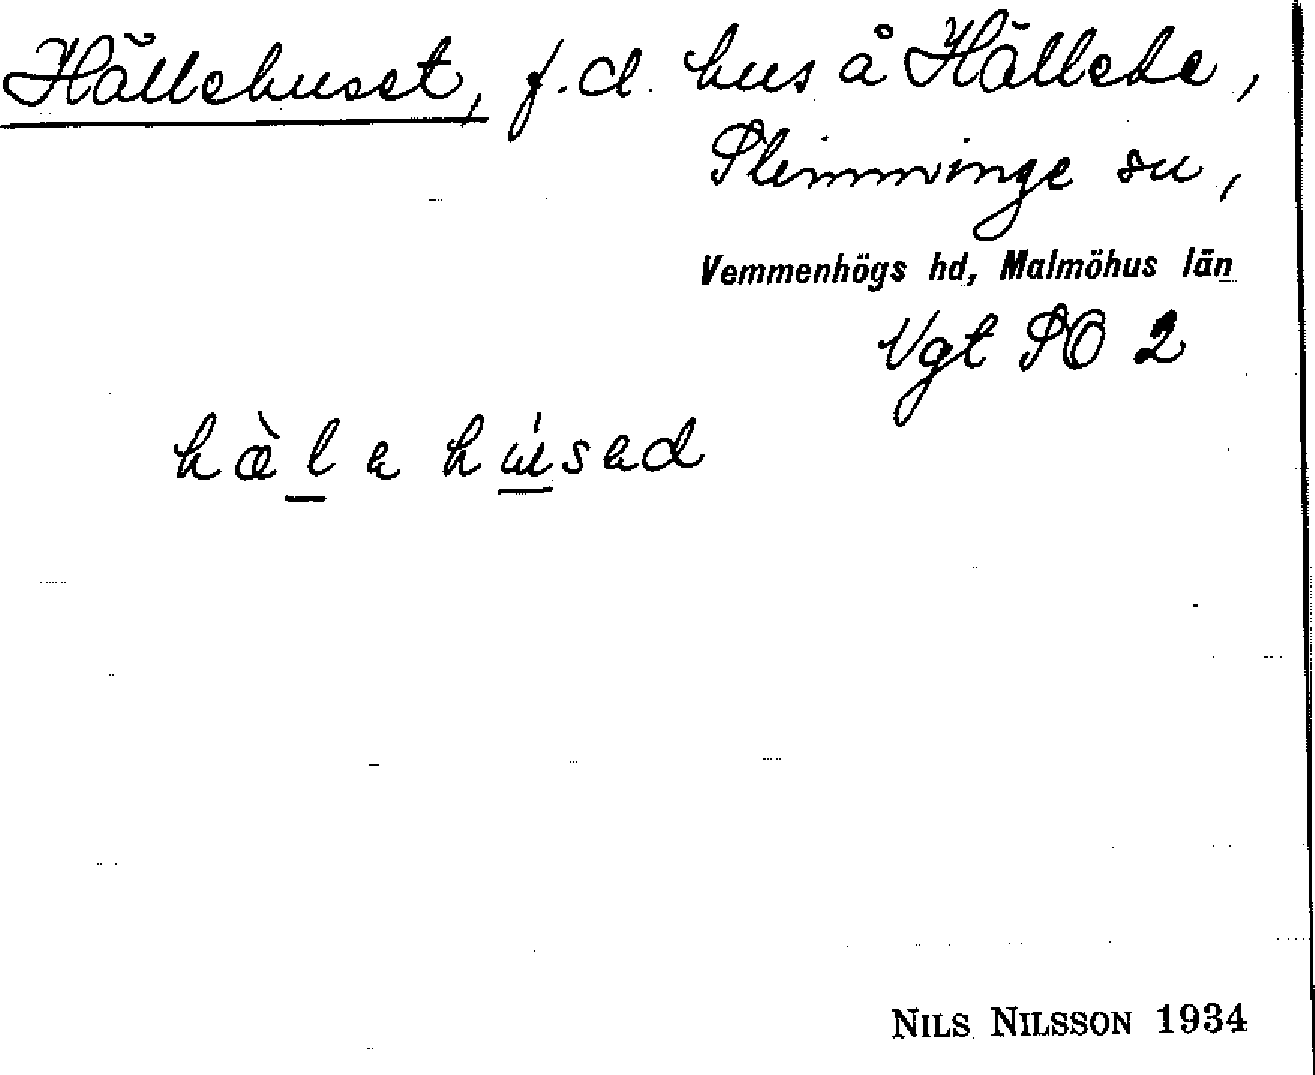 Hällehuset, f.d. hus å Hällebe,
Slimminge sn,
Vemmenhögs hd, Malmöhus län
Vgt SO 2
hæ̀le húsed
NILS NILSSON 1934